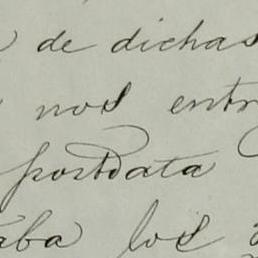 de dichas
nos entr
postdata
aba los